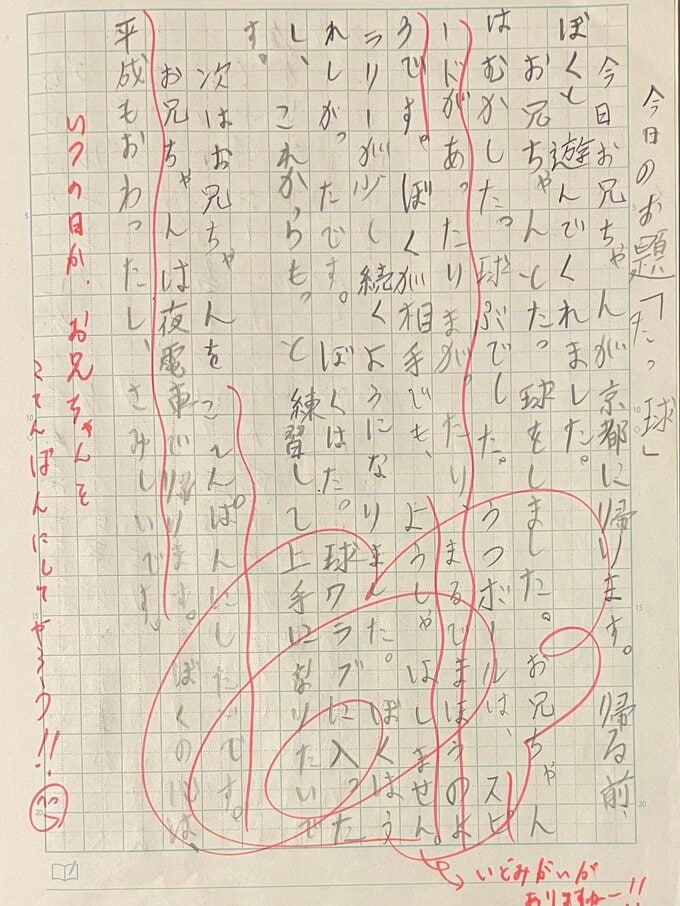 今日のお題「たっ球」
今日お兄ちゃんが京都に帰ります。帰る前、
ぼくと遊んでくれました。
お兄ちゃんとたっ球をしました。お兄ちゃん
はむかしたっ球ぶでした。うつボールは、スピ
ードがあったりまがったり、まるでまほうのよ
うです。ぼくが相手でも、ようしゃはしません。
ラリーが少し続くようになりました。ぼくはう
れしかったです。ぼくはたっ球クラブに入った
し、これからもっと練習して上手になりたいで
す。
次はお兄ちゃんをこてんぱんにしたいです。
お兄ちゃんは夜電車で帰ります。ぼくの心は、
平成もおわったし、さみしいです。
いつの日か、お兄ちゃんを
こてんぱんにしてやろう!!
いどみがいが
ありますねー!!